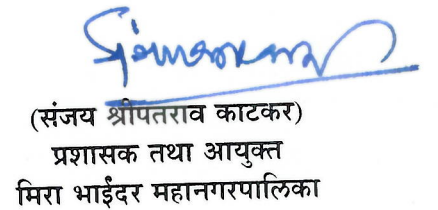 (संजय श्रीपतराव काटकर)
प्रशासक तथा आयुक्त
मिरा भाईंदर महानगरपालिका